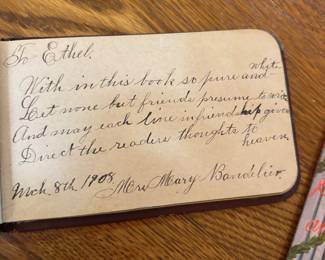 To Ethel.
With in this book so pure and white
Let none but friends presume to write
And may each line in friendship given
Direct the readers thoughts to heaven.
Mch. 8th. 1908. Mrs Mary Bandelier.